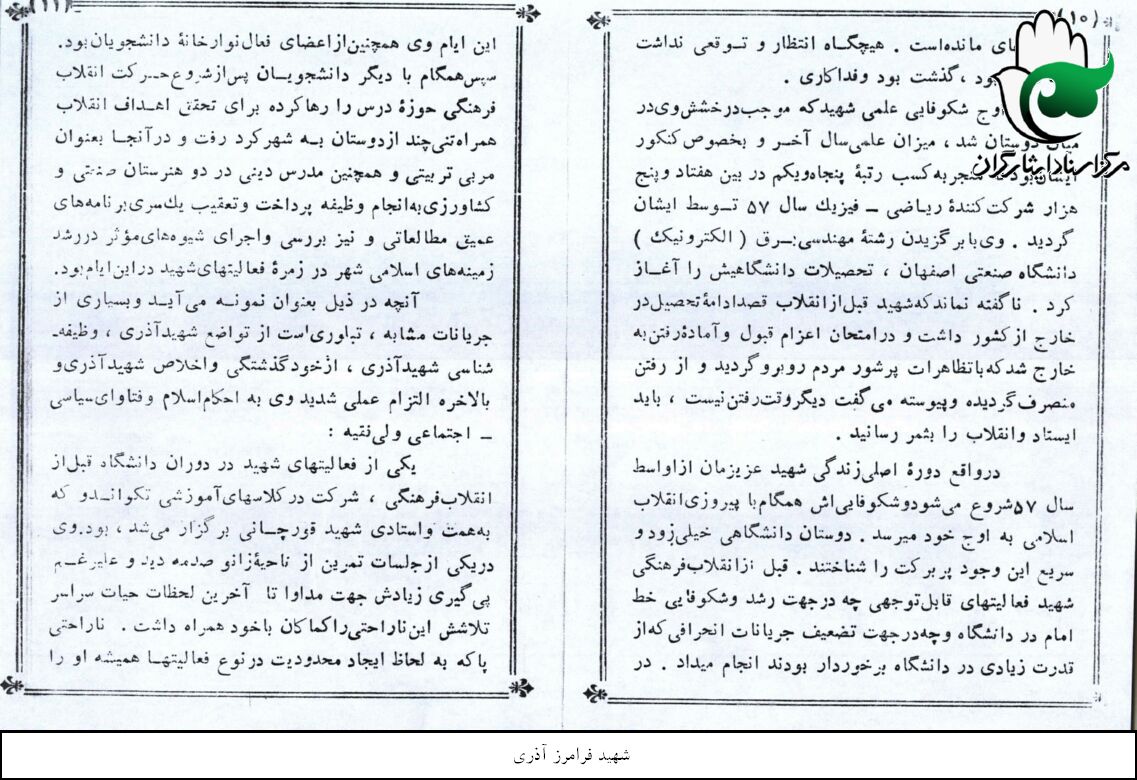 (۱۰)
مرکز اسناد ایثارگران
مانده‌است . هیچگاه انتظار و توقعی نداشت
بود ، گذشت بود وفداکاری .
اوج شکوفایی علمی شهیدکه موجب‌درخشش‌وی‌در
میان دوستان شد ، میزان علمی‌سال آخر و بخصوص کنکور
به‌کسب رتبهٔ پنجاه‌ویکم در بین هفتاد وپنج
هزار شرکت‌کنندهٔ ریاضی – فیزیك سال ۵۷ توسط ایشان
گردید . وی‌بابرگزیدن رشتهٔ مهندسی‌برق ( الکترونیك )
دانشگاه صنعتی اصفهان ، تحصیلات دانشگاهیش را آغاز
کرد . ناگفته نماندکه‌شهید قبل‌ازانقلاب قصدادامهٔ‌تحصیل‌در
خارج ازکشور داشت و درامتحان اعزام قبول وآمادهٔ‌رفتن‌به
خارج شدکه‌باتظاهرات پرشور مردم روبروگردید و از رفتن
منصرف‌گردیده وپیوسته می‌گفت دیگروقت‌رفتن‌نیست ، باید
ایستاد وانقلاب را بثمر رسانید .
درواقع دورهٔ اصلی‌زندگی شهید عزیزمان ازاواسط
سال ۵۷شروع می‌شودوشکوفایی‌اش همگام‌با پیروزی‌انقلاب
اسلامی به اوج خود میرسد . دوستان دانشگاهی خیلی‌زودو
سریع این وجود پربرکت را شناختند . قبل ازانقلاب‌فرهنگی
شهید فعالیتهای قابل‌توجهی چه درجهت رشد وشکوفایی خط
امام در دانشگاه وچه‌درجهت تضعیف جریانات انحرافی‌که‌از
قدرت زیادی در دانشگاه برخوردار بودند انجام میداد . در
(۱۱)
این ایام وی همچنین‌ازاعضای فعال‌نوارخانهٔ دانشجویان‌بود.
سپس‌همگام با دیگر دانشجویان پس‌ازشروع‌حرکت انقلاب
فرهنگی حوزهٔ درس را رهاکرده برای تحقق اهداف انقلاب
همراه‌تنی‌چند ازدوستان به شهرکرد رفت و درآنجا بعنوان
مربی تربیتی و همچنین مدرس دینی در دو هنرستان صنعتی و
کشاورزی‌به‌انجام وظیفه پرداخت وتعقیب یك‌سری‌برنامه‌های
عمیق مطالعاتی و نیز بررسی واجرای شیوه‌های‌مؤثر دررشد
زمینه‌های اسلامی شهر در زمرهٔ فعالیتهای‌شهید دراین‌ایام‌بود.
آنچه در ذیل بعنوان نمونه می‌آید وبسیاری از
جریانات مشابه ، تبلوری‌است از تواضع شهیدآذری ، وظیفه‌
شناسی شهیدآذری ، ازخودگذشتگی واخلاص شهیدآذری‌و
بالاخره التزام عملی شدید وی به احکام‌اسلام وفتاوای‌سیاسی
– اجتماعی ولی‌فقیه :
یکی از فعالیتهای شهید در دوران دانشگاه قبل‌از
انقلاب‌فرهنگی ، شرکت درکلاسهای‌آموزشی تکواندو که
به‌همت واستادی شهید قورچانی برگزار می‌شد ، بود.وی
دریکی ازجلسات تمرین از ناحیهٔ‌زانو صدمه دید و علیرغم
پی‌گیری زیادش جهت مداوا تا آخرین لحظات حیات سراسر
تلاشش این‌ناراحتی‌راکماکان باخود همراه داشت . ناراحتی
پاکه به لحاظ ایجاد محدودیت درنوع فعالیتها همیشه او را
شهید فرامرز آذری